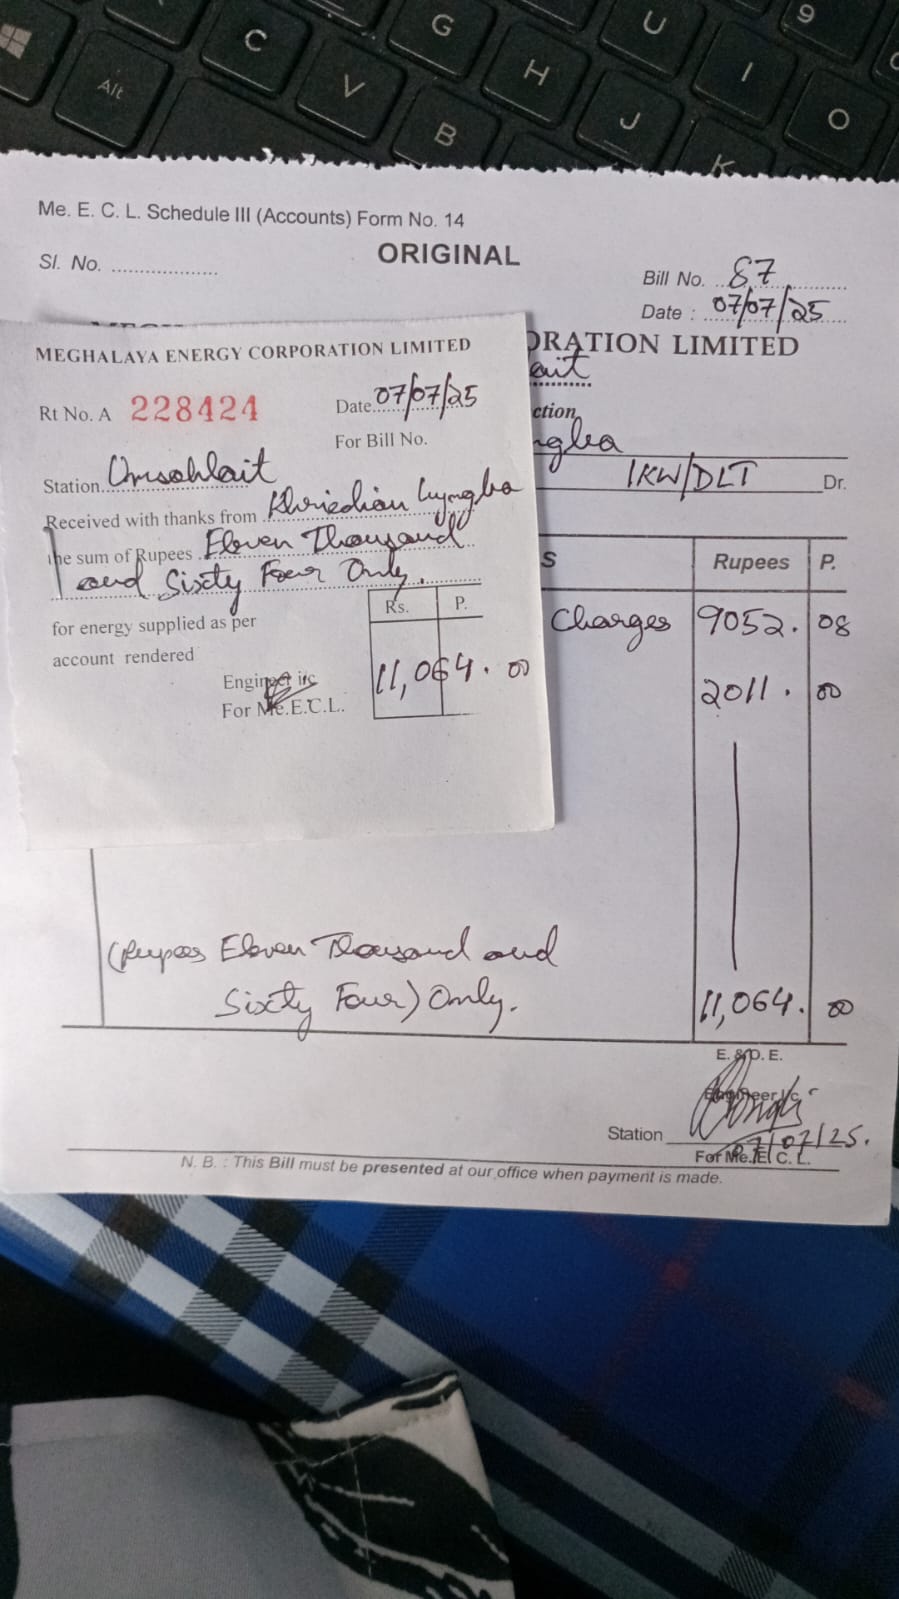 Me. E. C. L. Schedule III (Accounts) Form No. 14
ORIGINAL
Sl. No. ....................
Bill No. 87
Date : 07/07/25
ORATION LIMITED
ait
ction
ngba
1KW/DLT Dr.
S Rupees P.
Charges 9052. 08
2011. 00
(Rupees Eleven Thousand and
Sixty Four) Only. 11,064. 00
E. & O. E.
Engineer i/c
Station
07/07/25.
For Me. E. C. L.
N. B. : This Bill must be presented at our office when payment is made.
MEGHALAYA ENERGY CORPORATION LIMITED
Rt No. A 228424 Date 07/07/25
For Bill No.
Station Umsohlait
Received with thanks from Khriedian Lyngba
the sum of Rupees Eleven Thousand
and Sixty Four Only.
for energy supplied as per
account rendered
Rs. P.
11,064. 00
Engineer i/c
For Me.E.C.L.
Alt
C
V
B
G
H
U
J
I
9
O
K